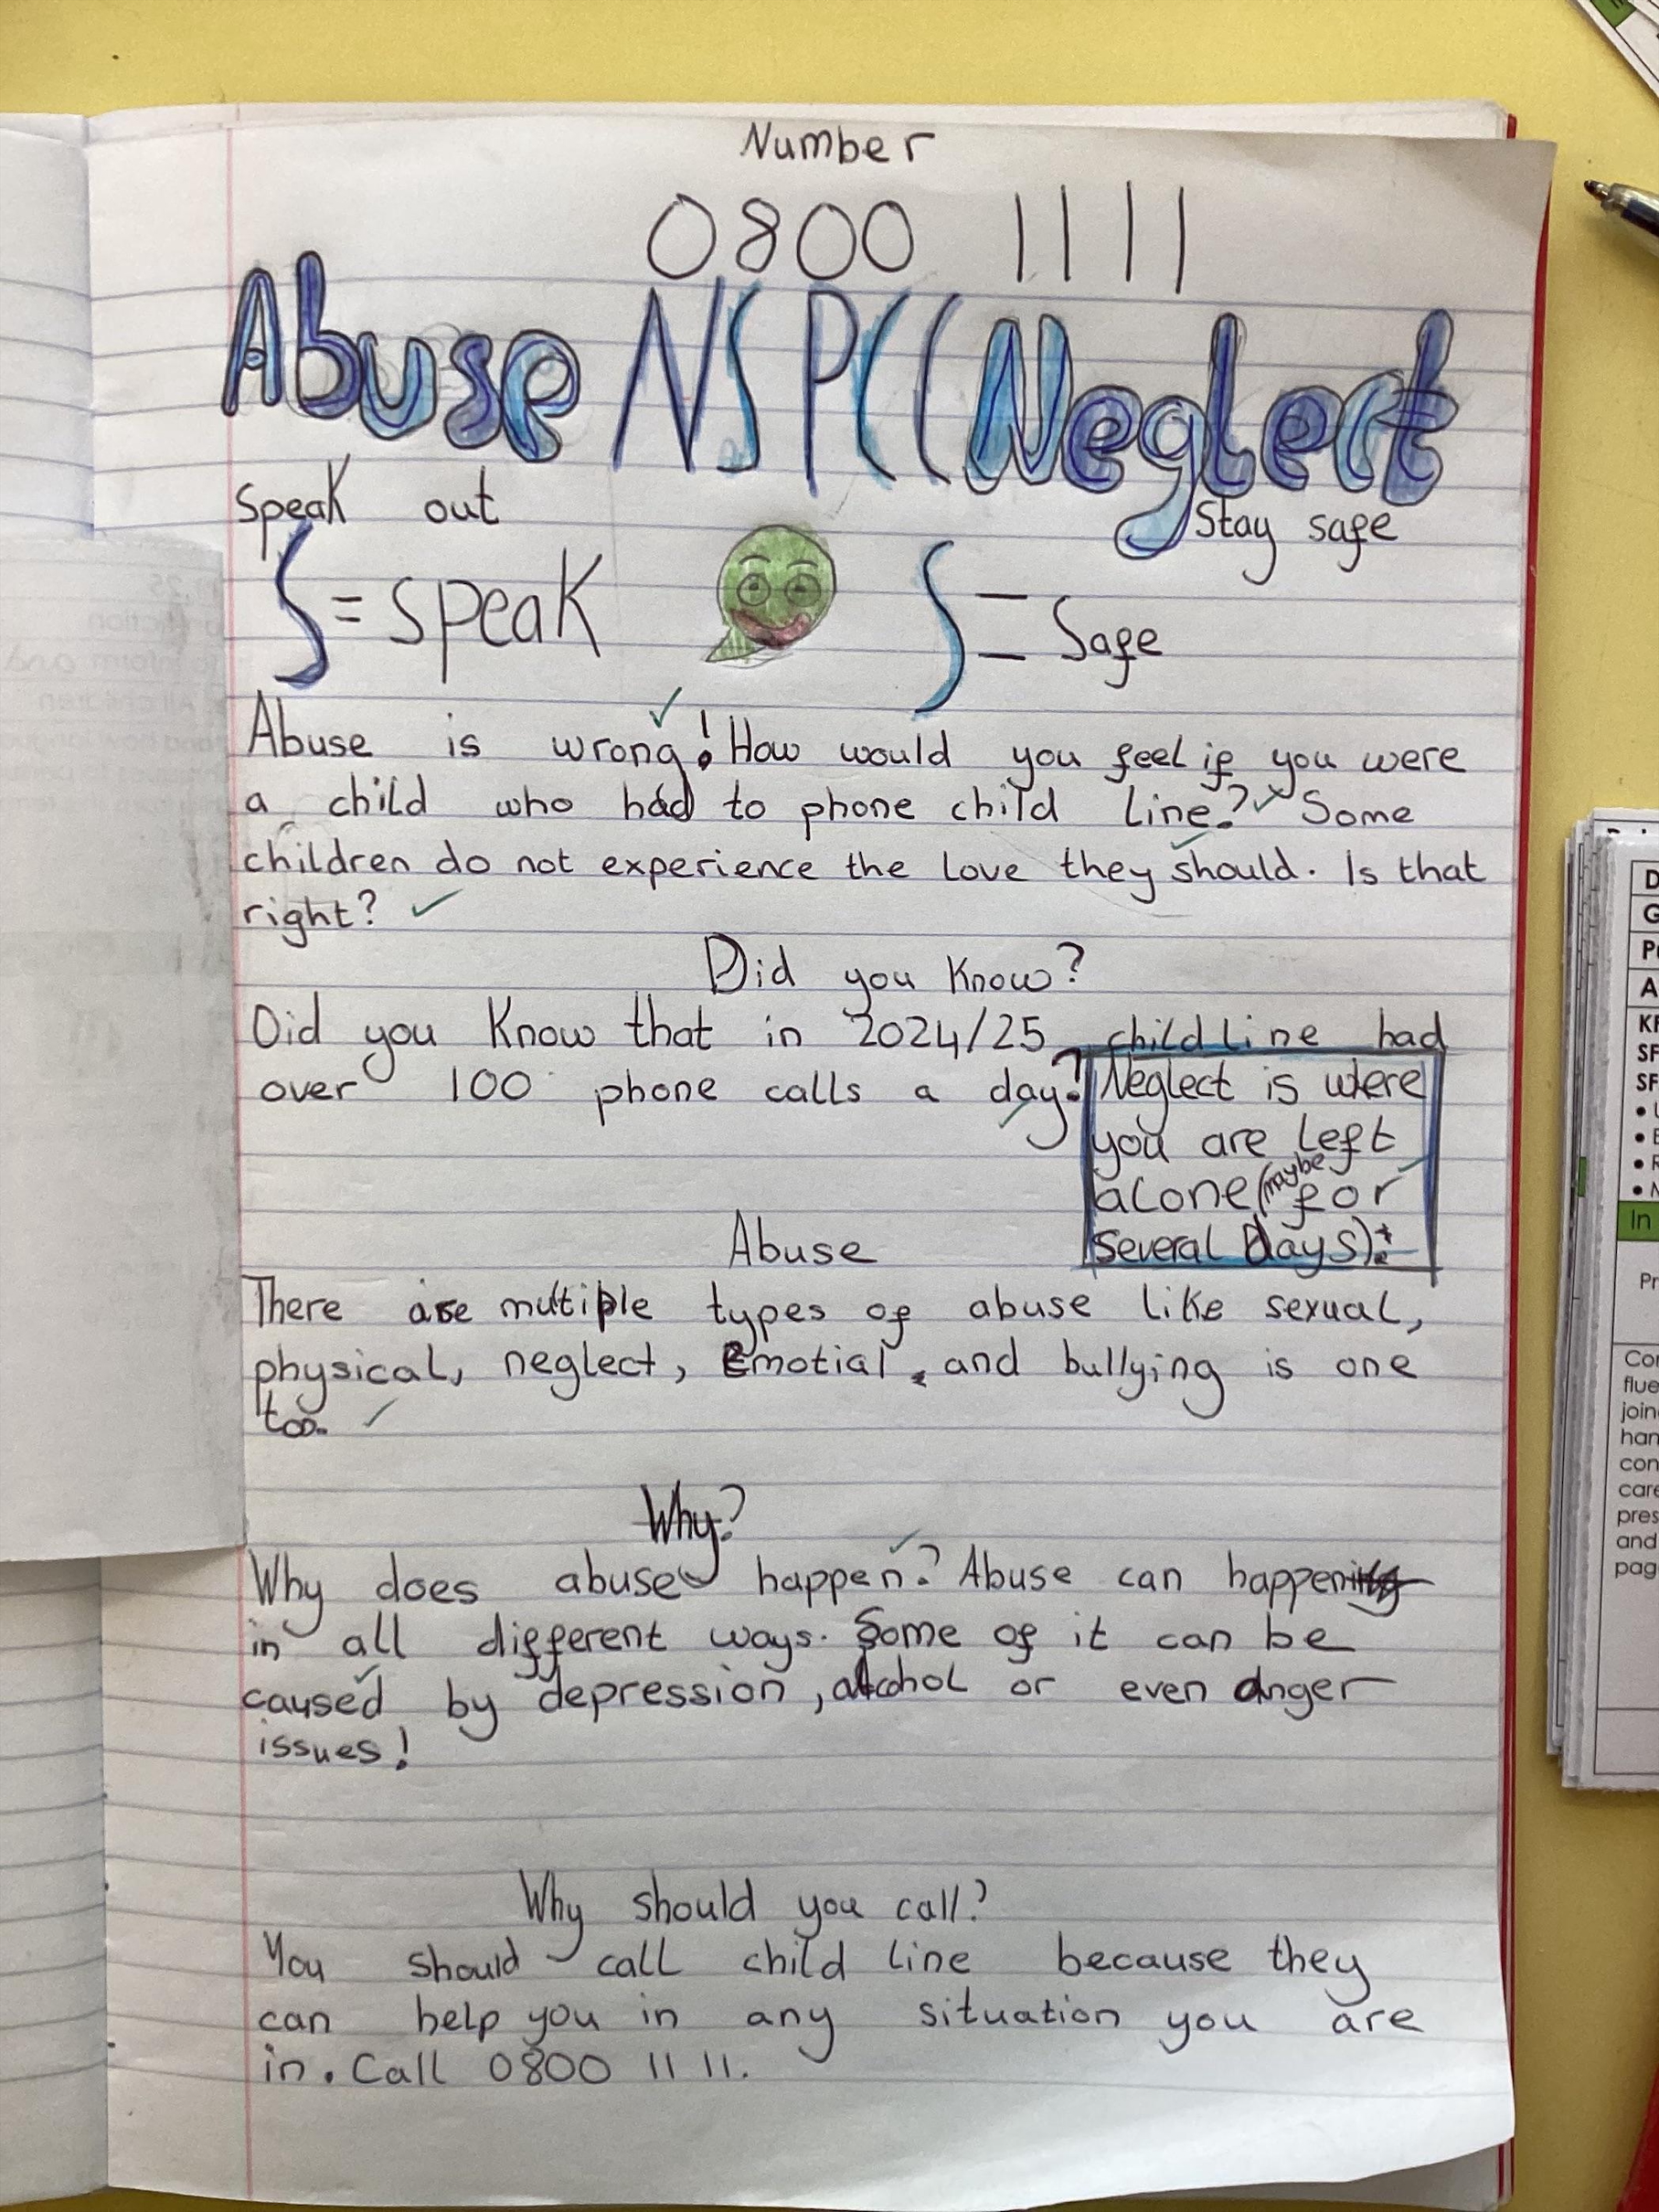 Number
0800 1111
Abuse NSPCC Neglect
speak out
Stay safe
S = speak
S = Safe
Abuse is wrong! How would you feel if you were
a child who had to phone child line? Some
children do not experience the love they should. Is that
right?
Did you know?
Did you know that in 2024/25 childline had
over 100 phone calls a day?
Neglect is where
you are left
alone (maybe for
several days).
Abuse
There are multiple types of abuse like sexual,
physical, neglect, Emotial, and bullying is one
too.
Why?
Why does abuse happen? Abuse can happen
in all different ways. Some of it can be
caused by depression, alcohol or even anger
issues!
Why should you call?
You should call child line because they
can help you in any situation you are
in. Call 0800 11 11.
D
G
A
KF
SF
SF
In
Pr
Cor
flue
join
han
con
care
pres
and
pag